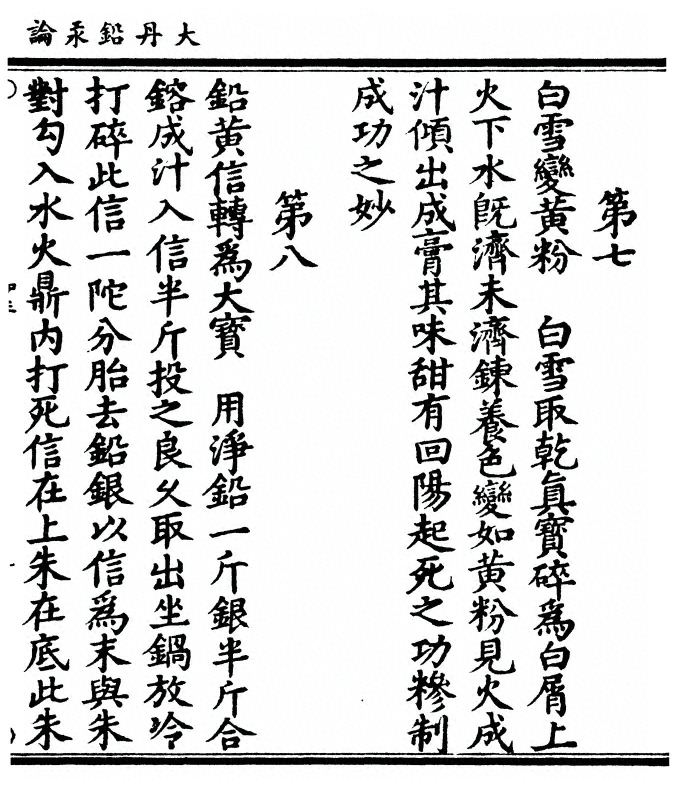 大丹鉛汞論
第七
白雪變黃粉　白雪取乾真寶碎爲白屑上
火下水旣濟未濟鍊養色變如黃粉見火成
汁傾出成膏其味甜有回陽起死之功糝制
成功之妙
第八
鉛黃信轉爲大寶　用淨鉛一斤銀半斤合
鎔成汁入信半斤投之良久取出坐鍋放冷
打碎此信一陀分胎去鉛銀以信爲末與朱
對勾入水火鼎内打死信在上朱在底此朱